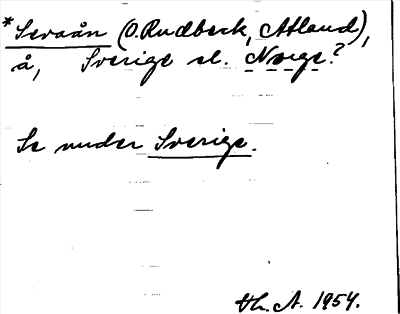 *Sevaån (O.Rudbeck, Atland),
å, Sverige el. Norge?
Se under Sverige.
Th. A. 1954.